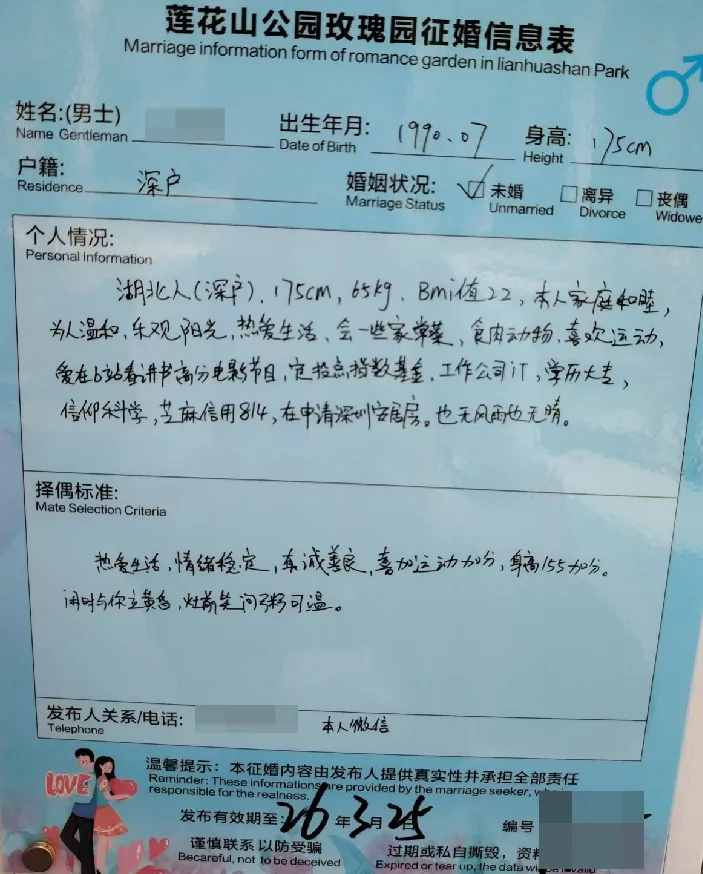 莲花山公园玫瑰园征婚信息表
Marriage information form of romance garden in lianhuashan Park
姓名:(男士)
Name Gentleman
出生年月: 1990.07
Date of Birth
身高: 175cm
Height
户籍: 深户
Residence
婚姻状况: ☑未婚 □离异 □丧偶
Marriage Status Unmarried Divorce Widowe
个人情况:
Personal Information
湖北人(深户)、175cm, 65kg、Bmi值22, 本人家庭和睦,
为人温和, 乐观阳光, 热爱生活、会一些家常菜, 食肉动物、喜欢运动,
爱在b站看讲书高分电影节目, 定投点指数基金, 工作公司IT, 学历大专,
信仰科学, 芝麻信用814, 在申请深圳安居房。也无风雨也无晴。
择偶标准:
Mate Selection Criteria
热爱生活, 情绪稳定, 真诚善良, 喜加运动加分, 身高155加分。
闲时与你立黄昏, 灶前笑问粥可温。
发布人关系/电话: 本人/微信
Telephone
LOVE
温馨提示: 本征婚内容由发布人提供真实性并承担全部责任
Reminder: These information are provided by the marriage seeker,
responsible for the realness.
发布有效期至: 26年3月25 编号
谨慎联系 以防受骗 过期或私自撕毁, 资料
Becareful, not to be deceived Expired or tear up, the data will be